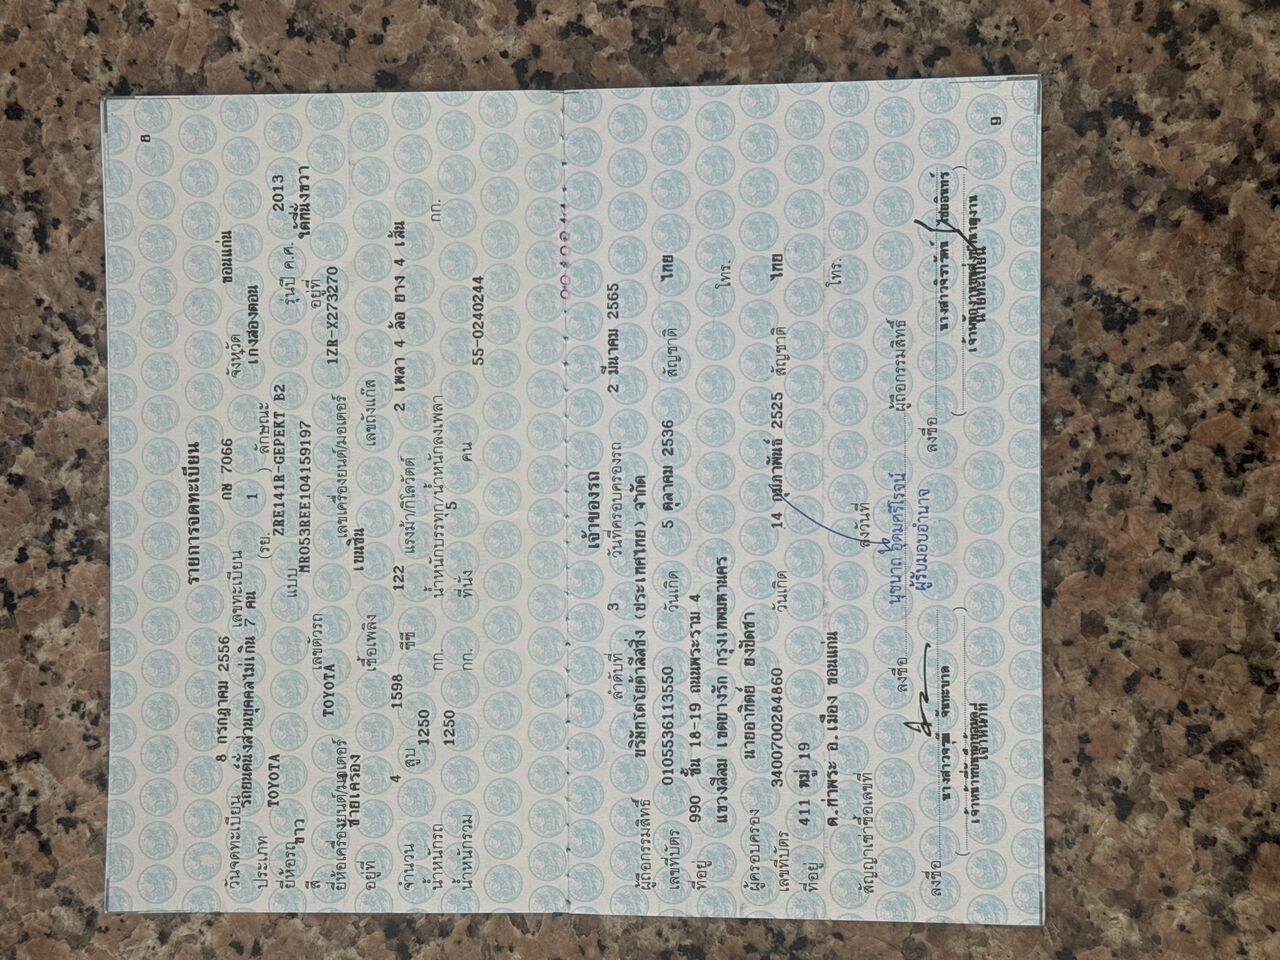 8
รายการจดทะเบียน
วันจดทะเบียน 8 กรกฎาคม 2556 เลขทะเบียน กษ 7066 จังหวัด ขอนแก่น
ประเภท รถยนต์นั่งส่วนบุคคลไม่เกิน 7 คน (รย. 1 ) ลักษณะ เก๋งสองตอน
ยี่ห้อรถ TOYOTA แบบ ZRE141R-GEPEKT B2 รุ่นปี ค.ศ. 2013
สี ขาว เลขตัวรถ MR053REE104159197 อยู่ที่ ใต้ที่นั่งขวา
ยี่ห้อเครื่องยนต์/มอเตอร์ TOYOTA เลขเครื่องยนต์/มอเตอร์ 1ZR-X273270
อยู่ที่ ซ้ายเครื่อง เชื้อเพลิง เบนซิน เลขถังแก๊ส
จำนวน 4 สูบ 1598 ซีซี 122 แรงม้า/กิโลวัตต์ 2 เพลา 4 ล้อ ยาง 4 เส้น
น้ำหนักรถ 1250 กก. น้ำหนักบรรทุก/น้ำหนักลงเพลา กก.
น้ำหนักรวม 1250 กก. ที่นั่ง 5 คน 55-0240244
เจ้าของรถ
ลำดับที่ 3 วันที่ครอบครองรถ 2 มีนาคม 2565
ผู้ถือกรรมสิทธิ์ บริษัทโตโยต้าลีสซิ่ง (ประเทศไทย) จำกัด
เลขที่บัตร 0105536113550 วันเกิด 5 ตุลาคม 2536 สัญชาติ ไทย
ที่อยู่ 990 ชั้น 18-19 ถนนพระราม 4
แขวงสีลม เขตบางรัก กรุงเทพมหานคร โทร.
ผู้ครอบครอง นายอาทิตย์ ยงปัดชา
เลขที่บัตร 3400700284860 วันเกิด 14 กุมภาพันธ์ 2525 สัญชาติ ไทย
ที่อยู่ 411 หมู่ 19
ต.ท่าพระ อ.เมือง ขอนแก่น โทร.
สัญญาเช่าซื้อเลขที่ ลงวันที่
ลงชื่อ นุชนาถ อุดมศรีโรจน์ ผู้ถือกรรมสิทธิ์
ผู้รับมอบอำนาจ
ลงชื่อ ลงชื่อ
นางสาวจิราวัฒน์
เจ้าหน้าที่
นายทะเบียน
9